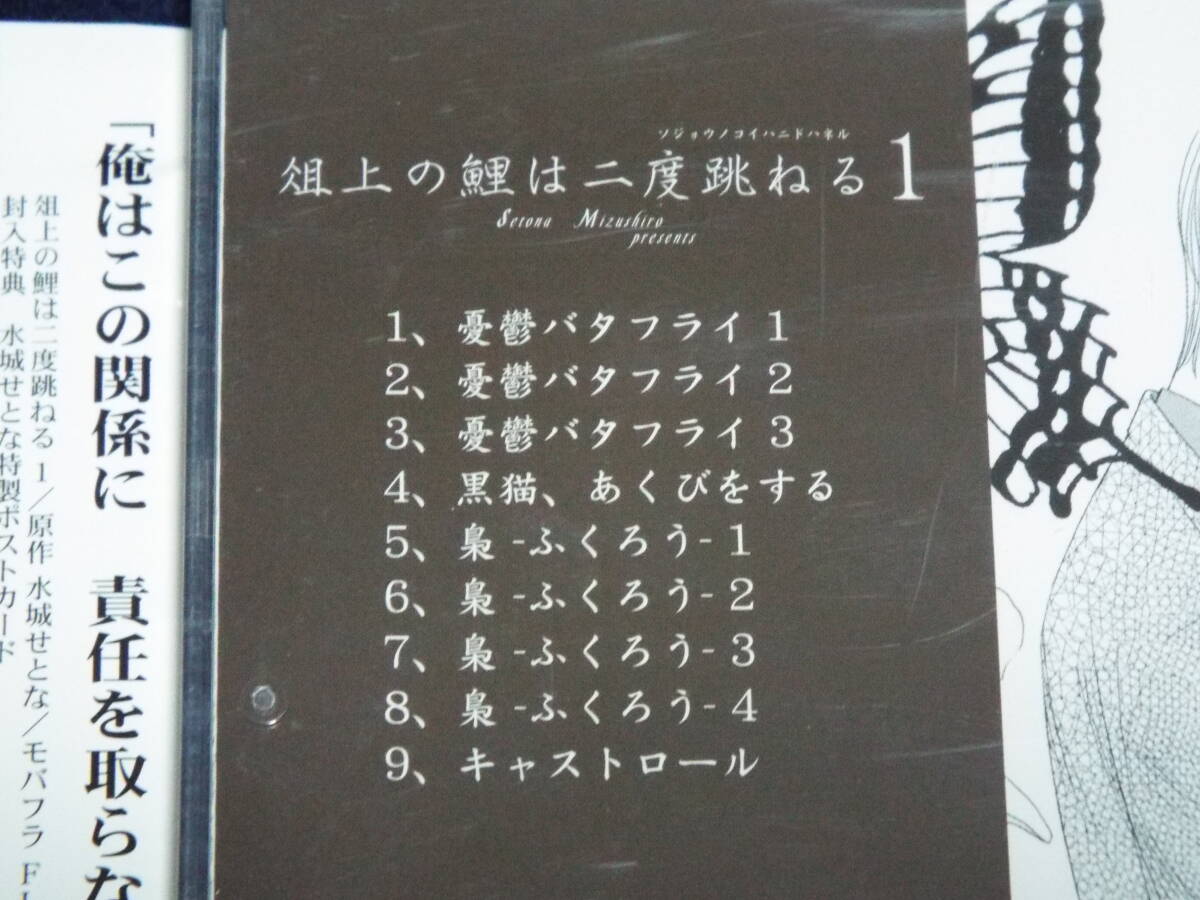 ソジョウノコイハニドハネル
俎上の鯉は二度跳ねる 1
Setona Mizushiro
presents
1、憂鬱バタフライ 1
2、憂鬱バタフライ 2
3、憂鬱バタフライ 3
4、黒猫、あくびをする
5、梟 -ふくろう- 1
6、梟 -ふくろう- 2
7、梟 -ふくろう- 3
8、梟 -ふくろう- 4
9、キャストロール
「俺はこの関係に 責任を取らな
俎上の鯉は二度跳ねる 1／原作 水城せとな／モバフラ
封入特典 水城せとな特製ポストカード